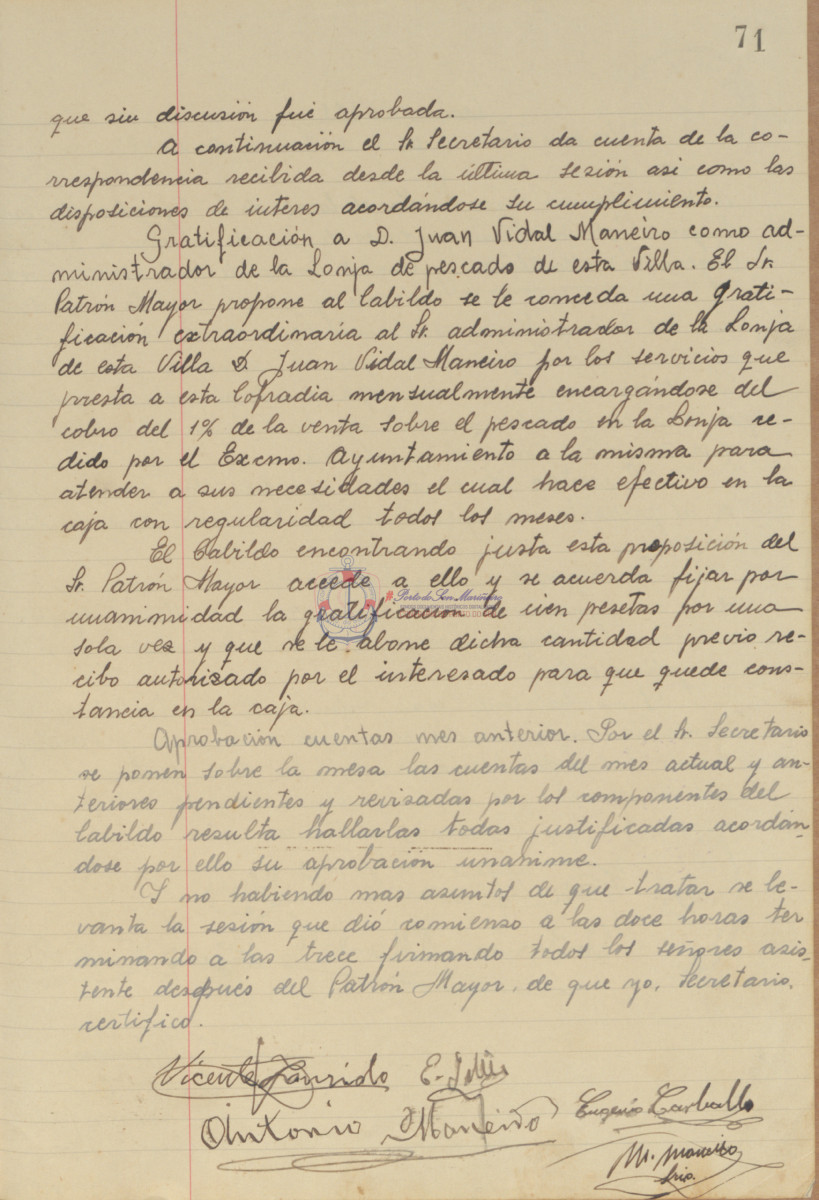 71
que sin discusión fué aprobada.
A continuación el Sr. Secretario da cuenta de la co-
rrespondencia recibida desde la última sesión asi como las
disposiciones de interes acordándose su cumplimiento.
Gratificación a D. Juan Vidal Maneiro como ad-
ministrador de la Lonja de pescado de esta Villa. El Sr.
Patrón Mayor propone al Cabildo se le conceda una grati-
ficación extraordinaria al Sr. administrador de la Lonja
de esta Villa D. Juan Vidal Maneiro por los servicios que
presta a esta Cofradia mensualmente encargándose del
cobro del 1% de la venta sobre el pescado en la Lonja ce-
dido por el Excmo. Ayuntamiento a la misma para
atender a sus necesidades el cual hace efectivo en la
caja con regularidad todos los meses.
El Cabildo encontrando justa esta proposición del
Sr. Patrón Mayor accede a ello y se acuerda fijar por
unanimidad la gratificación de cien pesetas por una
sola vez y que se le abone dicha cantidad previo re-
cibo autorizado por el interesado para que quede cons-
tancia en la caja.
Aprobación cuentas mes anterior. Por el Sr. Secretario
se ponen sobre la mesa las cuentas del mes actual y an-
teriores pendientes y revisadas por los componentes del
Cabildo resulta hallarlas todas justificadas acordán-
dose por ello su aprobación unanime.
Y no habiendo mas asuntos de que tratar se le-
vanta la sesión que dió comienzo a las doce horas ter
minando a las trece firmando todos los señores asis-
tente después del Patrón Mayor, de que yo, Secretario,
certifico.
Vicente E.
Antonio Maneiro Eugenio Carballo
M. Maneiro
Srio.